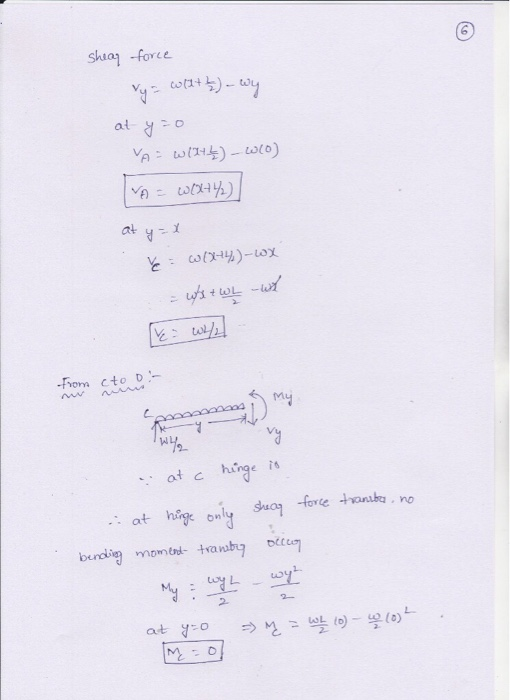 6
shear force
Vy = w(x+L/2) - wy
at y = 0
VA = w(x+L/2) - w(0)
VA = w(x+L/2)
at y = x
VC = w(x+L/2) - wx
= wx + wL/2 - wx
VC = wL/2
From C to D :-
My
C
y
Vy
WL/2
∵ at C hinge is
∴ at hinge only shear force transfer. no
bending moment transfer occur
My = wyL/2 - wy²/2
at y=0 ⇒ MC = wL/2 (0) - w/2 (0)²
MC = 0